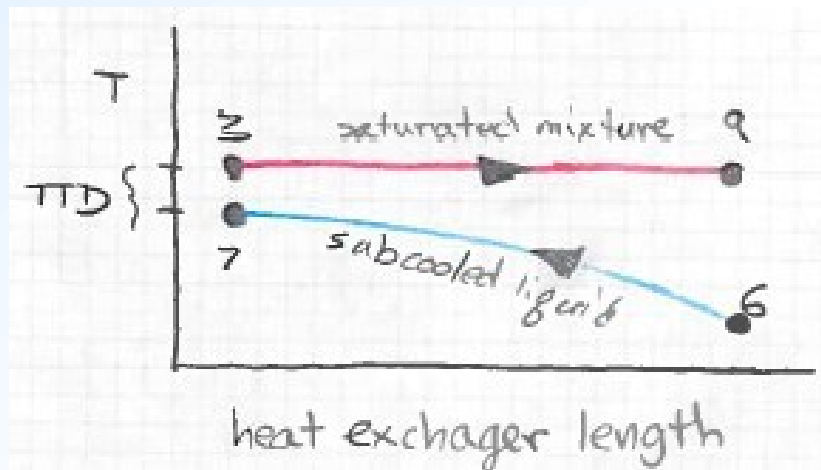 T
3 saturated mixture 9
TTD {
7 subcooled liquid 6
heat exchager length